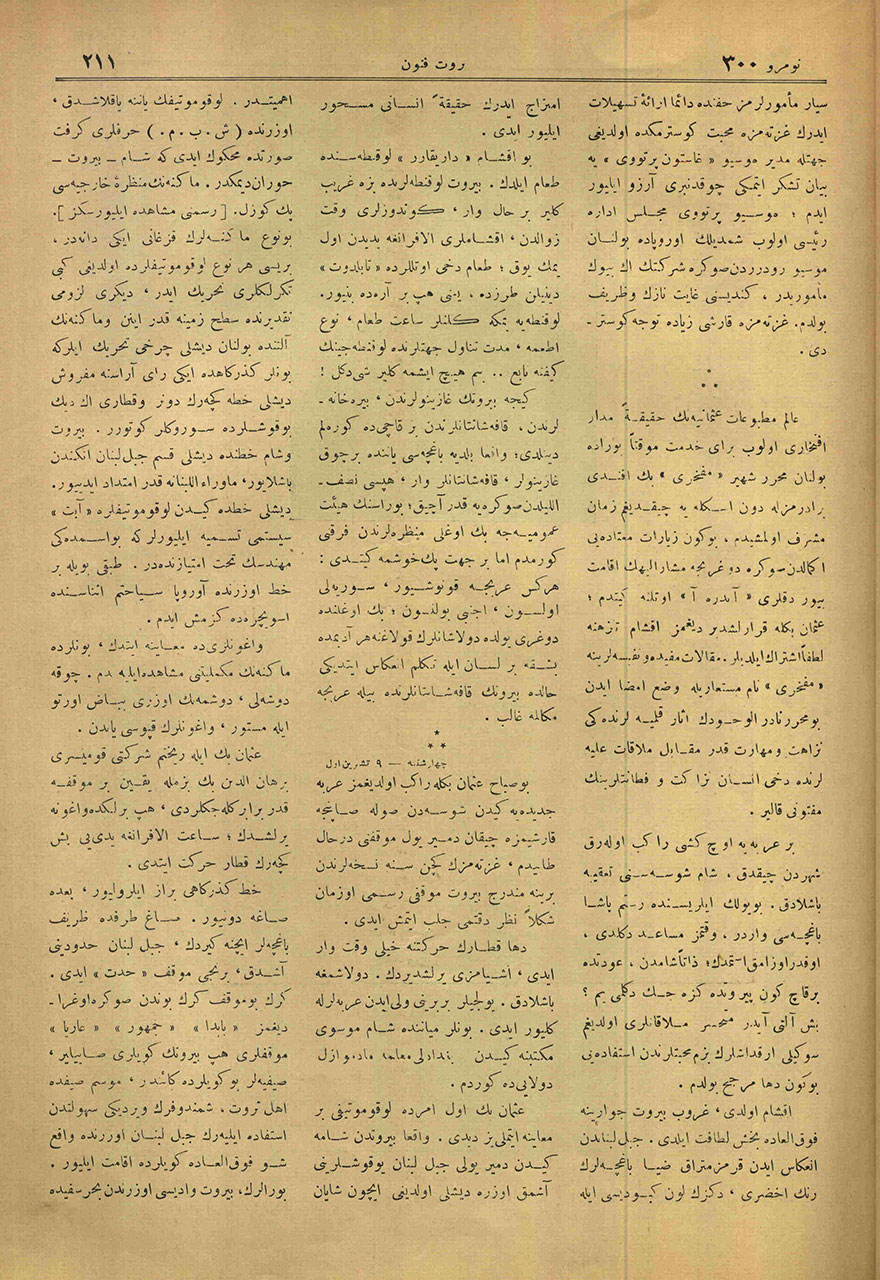 نومرو ٣٠٠
ثروت فنون
٢١١
سیار مأمورلرمز حقنده دائما ارائهٔ تسهیلات
ایدرك غزته‌مزه محبت كوسترمكده اولدیغی
جهتله مدیر موسیو « غاستون پرتووی » یه
بیان تشكر ایتمكی چوقدنبری آرزو ایلیور
ایدم ؛ موسیو پرتووی مجلس اداره
رئیسی اولوب شمدیلك اوروپاده بولنان
موسیو رودردن صوكره شركتك اك بیوك
مأموریدر ، كندیسنی غایت نازك وظریف
بولدم. غزته‌مزه قارشی زیاده توجه كوستر ـ
دی .
عالم مطبوعات عثمانیه‌نك حقیقةً مدار
افتخاری اولوب برای خدمت موقتاً بوراده
بولنان محرر شهیر « مفتخری » بك افندی
برادرمزله دون اسكله یه چیقدیغم زمان
مشرف اولمشیدم ، بوكون زیارات معتاده‌یی
اكمالدن صوكره دوغریجه مشارالیهك اقامت
بیور دقلری « آندره آ » اوتلنه كیتدم ؛
عثمان بكله قرارلشدیر دیغمز اقشام تنزهنه
لطفاً اشتراك ایلدیلر . مقالات مفیده ونفیسه‌لرینه
« مفتخری » نام مستعاریله وضع امضا ایدن
بومحرر نادر الوجودك آثار قلمیه لرنده كی
نزاهت ومهارت قدر مقابل ملاقات علیه
لرنده دخی انسان نزاكت و فطانتلرینك
مفتونی قالیر .
بر عربه یه اوچ كشی راكب اوله‌رق
شهردن چیقدق ، شام شوسه‌سنی تعقیبه
باشلادق . بویولك ایلریسنده رستم پاشا
باغچه‌سی واردر ، وقتمز مساعد دكلدی ،
اوقدر اوزامق ایستمدك؛ ذاتاً شامدن ، عودتده
برقاچ كون بیروتده كزه جك دكلمی یم ؟
بش آلتی آیدر متحسر ملاقاتلری اولدیغم
سوكیلی ارقداشلرك بزم محبتلرندن استفاده‌یی
بوكون دها مرجح بولدم .
اقشام اولدی ، غروب بیروت جوارینه
فوق‌العاده بخش لطافت ایلدی . جبل لبناندن
انعكاس ایدن قرمزمتراق ضیا باغچه‌لرك
رنك اخضری ، دكزك لون كبودیسی ایله
امتزاج ایدرك حقیقةً انسانی مسحور
ایلیور ایدی .
بو اقشام « داریقارر » لوقنطه‌سنده
طعام ایلدك . بیروت لوقنطه‌لرنده بزه غریب
كلیر بر حال وار ، كوندوزلری وقت
زوالدن ، اقشاملری الافرانغه یدیدن اول
یمك یوق ؛ طعام دخی اوتللرده « تابلدوت »
دینیلن طرزده ، یعنی هپ بر آره‌ده ینیور.
لوقنطه‌یه یمكه كلنلر ساعت طعام ، نوع
اطعمه ، مدت تناول جهتلرنده لوقنطه‌جینك
كیفنه تابع .. بسم هیچ ایشمه كلیر شی‌دكل !
كیجه بیروتك غازینولرندن ، بیره‌خانه ـ
لرندن ، قافه‌شانتانلرندن بر قاچی‌ده كوره‌لم
دینلدی ؛ واقعا بلدیه باغچه‌سی یاننده برچوق
غازینولر ، قافه‌شانتانلر وار ، هپسی نصف‌ـ
اللیلدن صوكره‌یه قدر آچیق ؛ بوراسنك هیئت
عمومیه‌جه بك اوغلی منظره‌لرندن فرقی
كورمدم اما بر جهت پك‌خوشمه كیتدی :
هركس عربجه قونوشیور ، سوریه‌لی
اولسون ، اجنبی بولنسون ؛ بك اوغلنده
دوغری یولده دولاشانلرك قولاغنه هر آدیمده
بشقه بر لسان ایله تكلم انعكاس ایتدیكی
حالده بیروتك قافه‌شانتانلرنده بیله عربجه
مكالمه غالب .
چهارشنبه — ٩ تشرین اول
بوصباح عثمان بكله راكب اولدیغمز عربه
جدیده‌یه كیدن شوسه‌دن صوله صاپنجه
قارشیمزه چیقان دمیر یول موقفنی درحال
طانیدم ، غزته‌مزك كچن سنه نسخه‌لرندن
برینه مندرج بیروت موقفی رسمی اوزمان
شكلاً نظر دقتمی جلب ایتمش ایدی .
دها قطارك حركتنه خیلی وقت وار
ایدی ، اشیامزی یرلشدیردك . دولاشمغه
باشلادق . یولجیلر بربرینی ولی‌ایدن عربه‌لرله
كلیور ایدی . بونلر میاننده شام موسوی
مكتبنه كیدن بغدادلی معلمه مادموازل
دولایی‌ده كوردم .
عثمان بك اول امرده لوقوموتیفی بر
معاینه ایتملی‌یز دیدی . واقعا بیروتدن شامه
كیدن دمیر یولی جبل لبنان یوقوشلرینی
آشمق اوزره دیشلی اولدیغی ایچون شایان
اهمیتدر . لوقوموتیفك یاننه یاقلاشدق ،
اوزرنده ( ش . ب . م . ) حرفلری كرفت
صورتده محكوك ایدی كه شام ـ بیروت ـ
حوران دیمكدر . ماكنه‌نك منظرهٔ خارجیه‌سی
پك كوزل. [ رسمنی مشاهده ایلیورسكز ].
بونوع ماكنه‌لرك قزغانی ایكی دانه‌در ،
بریسی هر نوع لوقوموتیفلرده اولدیغی كبی
تكرلكلری تحریك ایدر ، دیكری لزومی
تقدیرنده سطح زمینه قدر اینن وماكنه‌نك
آلتنده بولنان دیشلی چرخی تحریك ایلركه
بونلر كذركاهده ایكی رای آراسنه مفروش
دیشلی خطه كچه‌رك دونر وقطاری اك دیك
یوقوشلرده سوروكلر كوتورر . بیروت
وشام خطنده دیشلی قسم جبل لبنان اتكندن
باشلایور، ماوراء اللبنانه قدر امتداد ایدییور.
دیشلی خطده كیدن لوقوموتیفلره « آبت »
سیستمی تسمیه ایلیورلر كه بواسمده‌كی
مهندسك تحت امتیازنده‌در . طبقی بویله بر
خط اوزرنده آوروپا سیاحتم اثناسنده
اسویچره‌ده كزمش ایدم .
واغونلری‌ده معاینه ایتدك ، بونلرده
ماكنه‌نك مكملیتنی مشاهده ایلیه‌مدم . چوقه
دوشه‌لی ، دوشمه‌نك اوزری بیاض اورتو
ایله مستور ، واغونلرك قپوسی یاندن .
عثمان بك ایله ریختم شركتی قومیسری
برهان الدین بك بزمله یقین بر موقفه
قدر برابر كله‌جكلردی ، هپ برلكده واغونه
یرلشدك ؛ ساعت الافرانغه یدی‌یی بش
كچه‌رك قطار حركت ایتدی .
خط كذركاهی براز ایلرولیور ، بعده
صاغه دونیور . صاغ طرفده ظریف
باغچه‌لر ایچنه كیردك ، جبل لبنان حدودینی
آشدق ، برنجی موقف « حدت » ایدی .
كرك بوموقف كرك بوندن صوكره اوغراـ
دیغمز « بابدا » « جمهور » « عاریا »
موقفلری هپ بیروتك كویلری صاییلیر ،
صیفیه‌لر بوكویلرده كائندر ، موسم صیفده
اهل ثروت ، شمندوفرك ویردیكی سهولتدن
استفاده ایلیه‌رك جبل لبنان اوزرنده واقع
شو فوق‌العاده كویلرده اقامت ایلیور .
بورالرك، بیروت وادیسی اوزرندن بحر سفیده